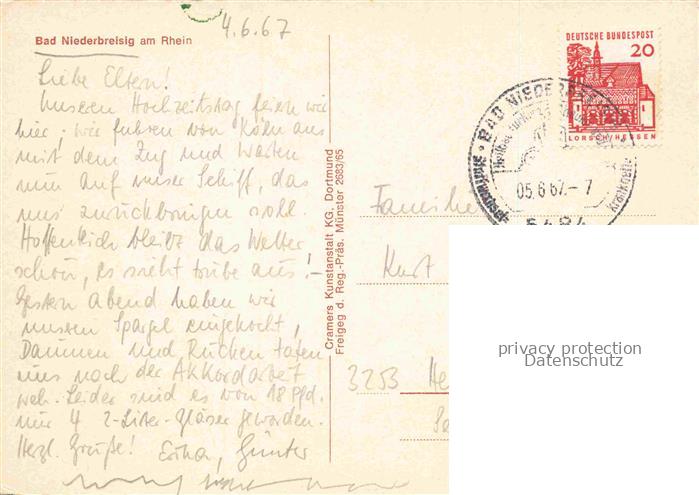 4.6.67
Bad Niederbreisig am Rhein
Liebe Eltern!
Unseren Hochzeitstag feiern wir
hier; wir fuhren von Köln aus
mit dem Zug und warten
nun auf unser Schiff, das
uns zurückbringen soll.
Hoffentlich bleibt das Wetter
schön, es sieht trübe aus! –
Gestern Abend haben wir
unseren Spargel eingekocht,
Daumen und Rücken taten
uns nach der Akkordarbeit
weh. Leider sind es von 18 Pfd.
nur 4 2-Liter-Gläser geworden.
Herzl. Grüße! Erika, Günter
Cramers Kunstanstalt KG. Dortmund
Freigeg d. Reg.-Präs. Münster 2683/65
DEUTSCHE BUNDESPOST
20
LORSCH/HESSEN
BAD NIEDERBREISIG
05.6.67.-7
5484
Familie
Kurt
3253 He
privacy protection
Datenschutz